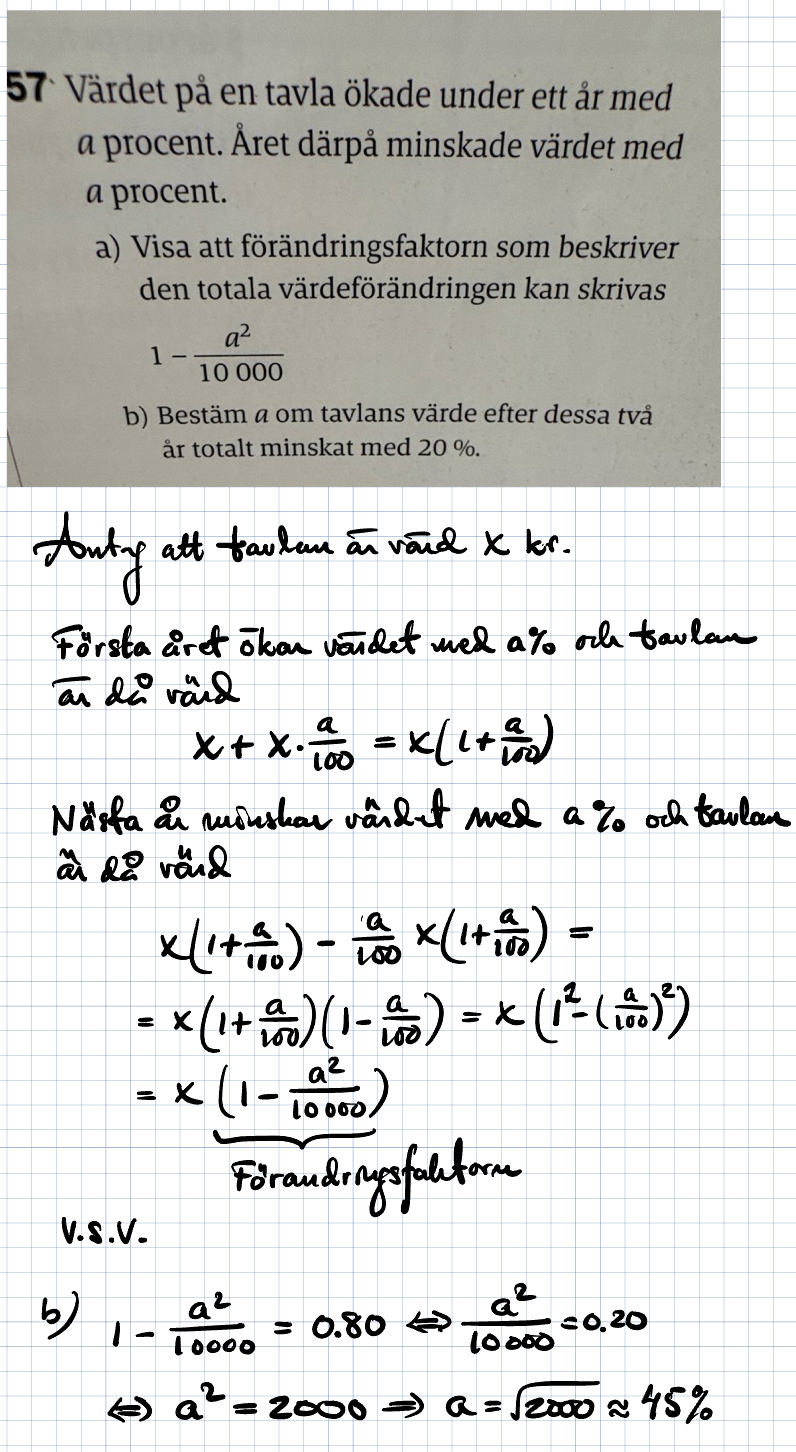 57 Värdet på en tavla ökade under ett år med
a procent. Året därpå minskade värdet med
a procent.
a) Visa att förändringsfaktorn som beskriver
den totala värdeförändringen kan skrivas
1 − a²/10 000
b) Bestäm a om tavlans värde efter dessa två
år totalt minskat med 20 %.
Antag att tavlan är värd x kr.
Första året ökar värdet med a% och tavlan
är då värd
x + x · a/100 = x(1 + a/100)
Nästa år minskar värdet med a % och tavlan
är då värd
x(1 + a/100) − a/100 x(1 + a/100) =
= x(1 + a/100)(1 − a/100) = x(1² − (a/100)²)
= x(1 − a²/10 000)
Förändringsfaktorn
V.S.V.
b) 1 − a²/10000 = 0.80 ⇔ a²/10 000 = 0.20
⇔ a² = 2000 ⇒ a = √2000 ≈ 45%